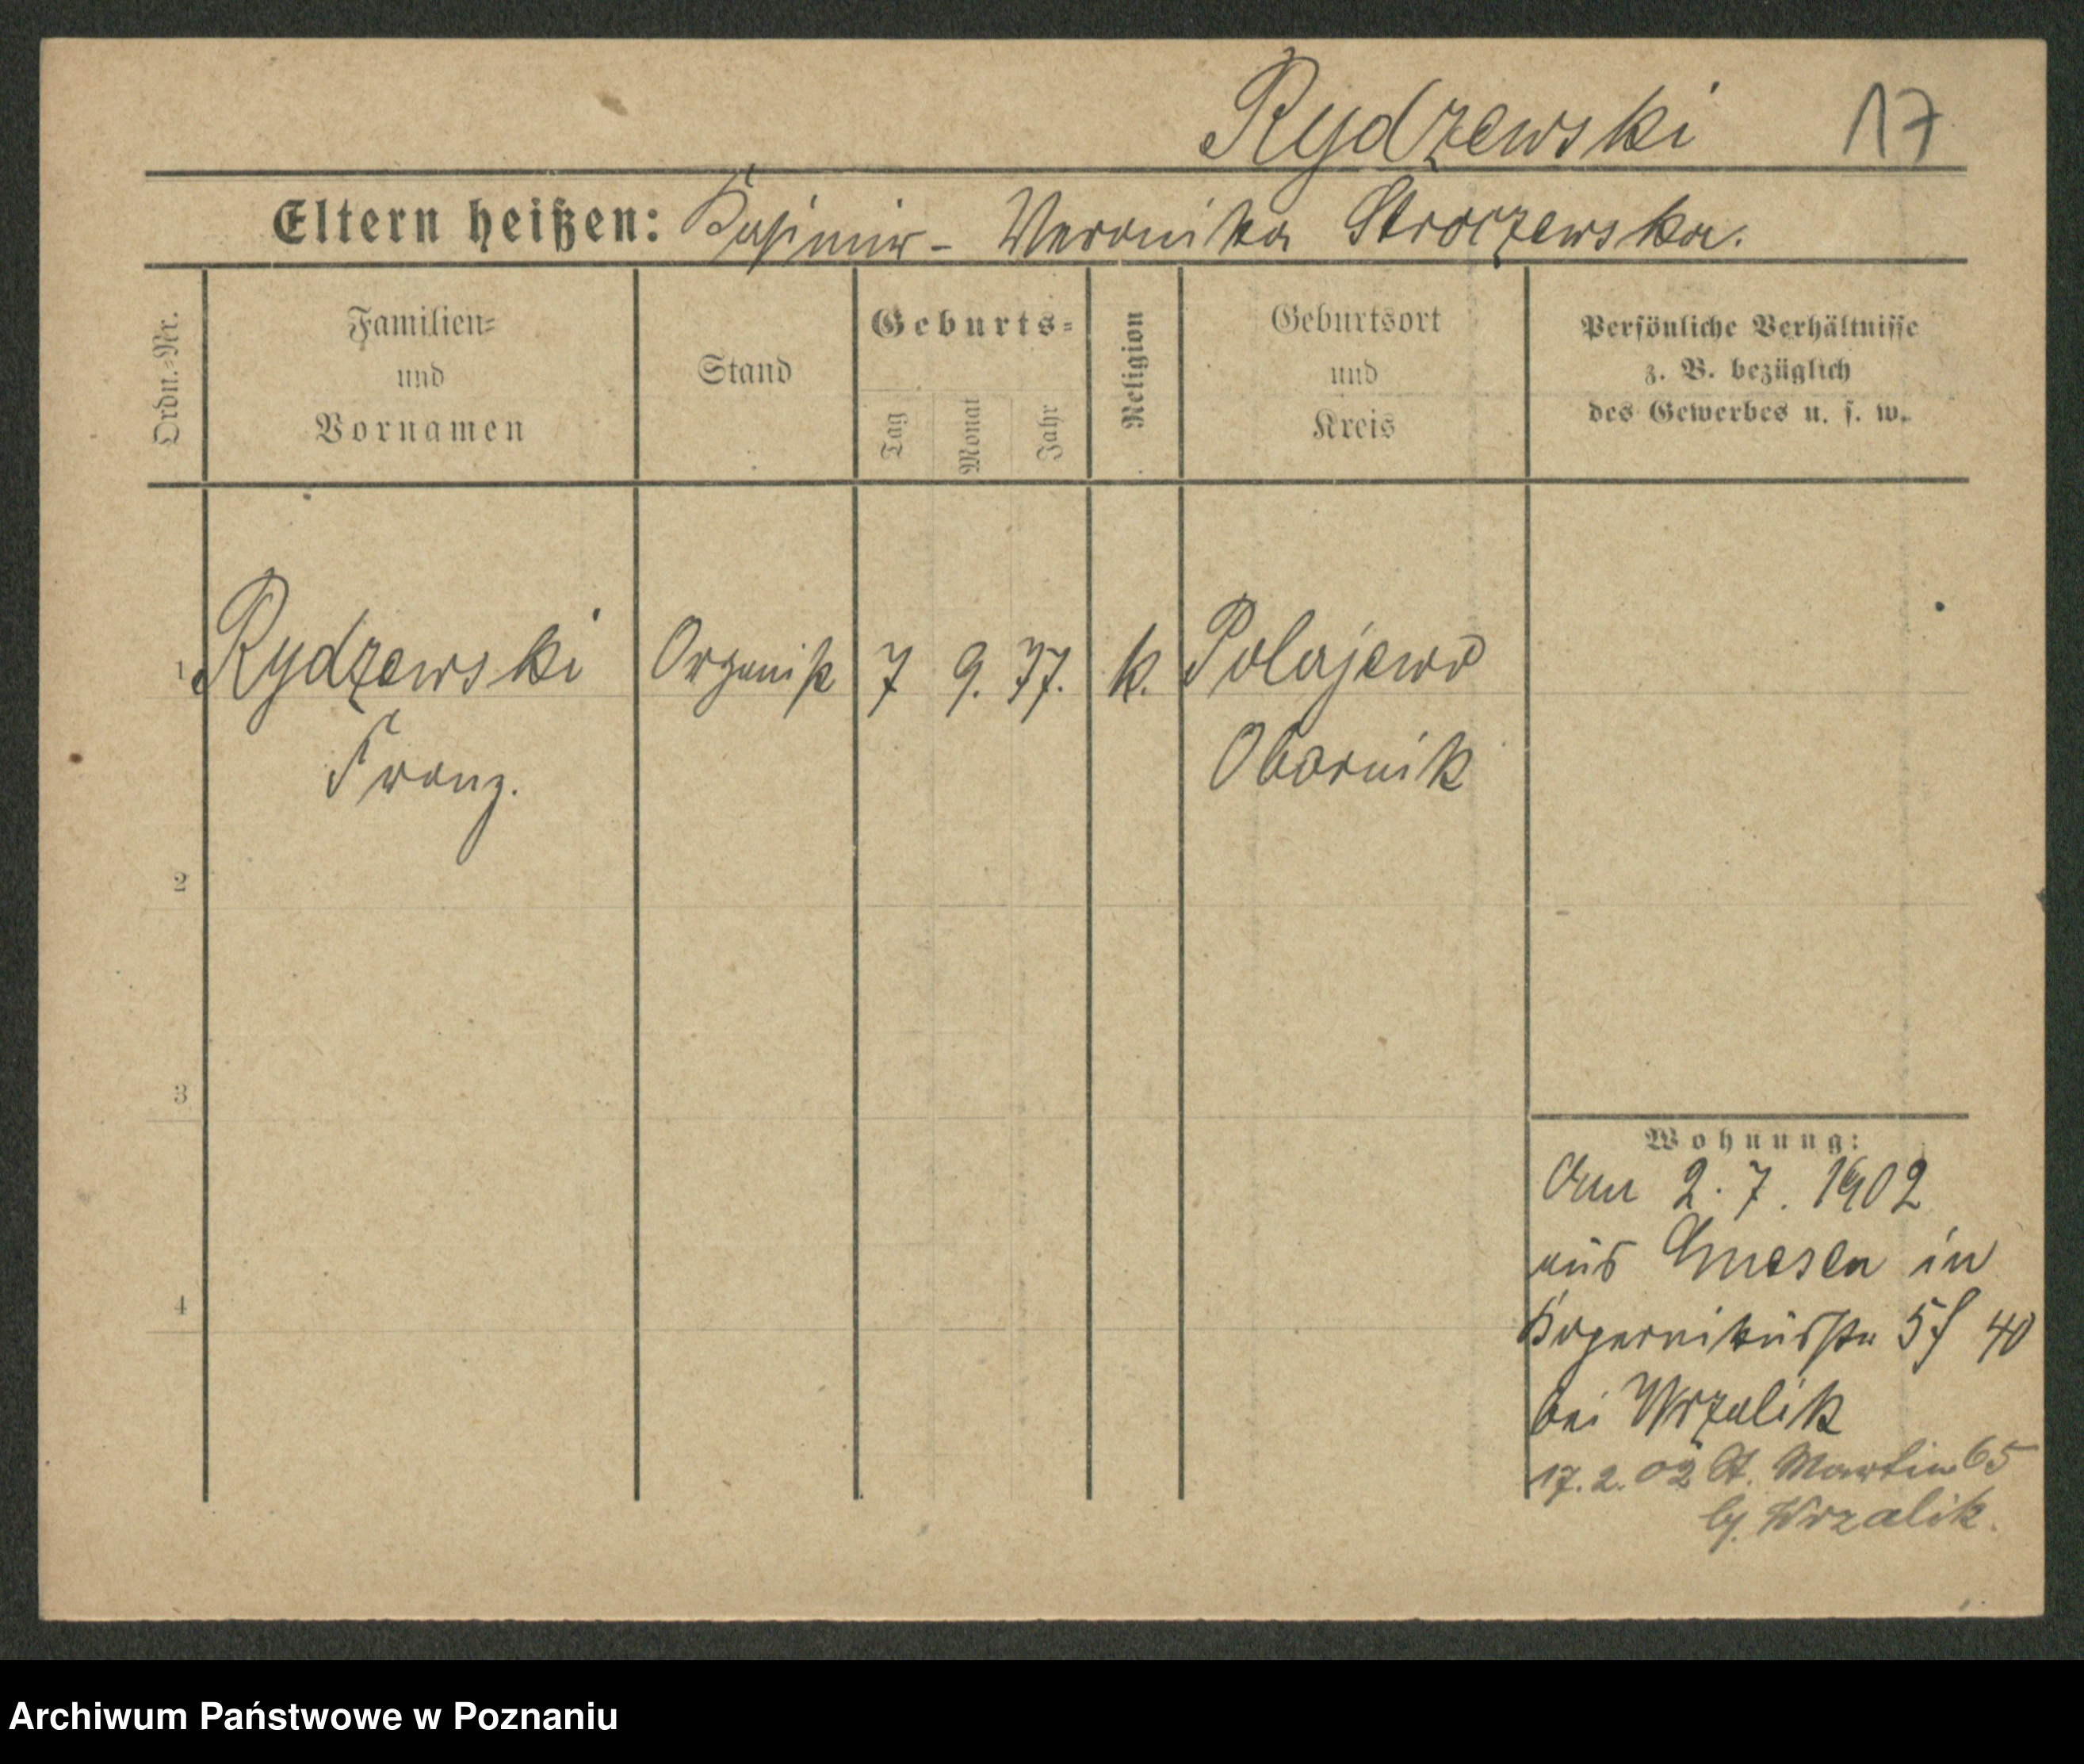 Rydzewski 17
Eltern heißen: Kasimir - Weronika Stroczewska.
Ordn.-Nr.
Familien-
und
Vornamen
Stand
Geburts-
Tag
Monat
Jahr
Religion
Geburtsort
und
Kreis
Persönliche Verhältnisse
z. B. bezüglich
des Gewerbes u. s. w.
1 Rydzewski Organist 7 9. 77. k. Polajewo
Franz. Obornik
2
3
4
Wohnung:
Am 2. 7. 1902
aus Gnesen in
Kopernikusstr 5 40
bei Wrzalik
17. 2. 02 St. Martin 65
b/. Wrzalik.
Archiwum Państwowe w Poznaniu